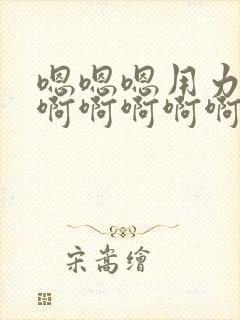 嗯嗯嗯用力
啊啊啊啊啊
宋嵩绘